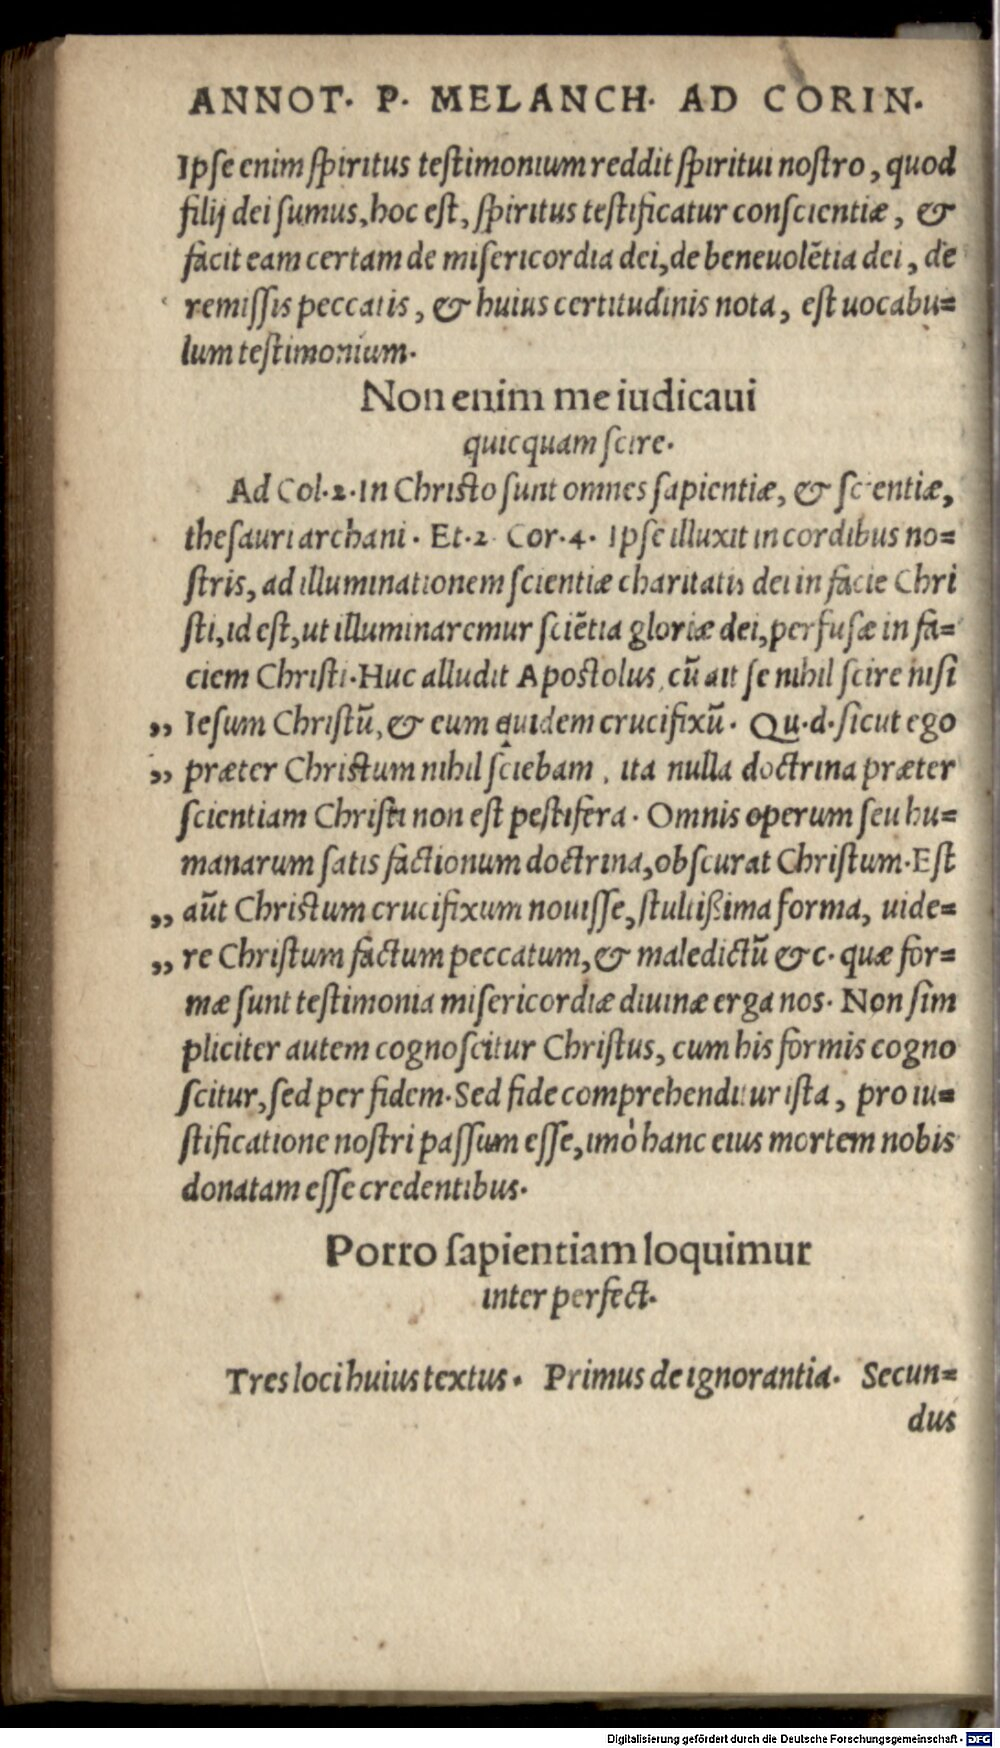 ANNOT. P. MELANCH. AD CORIN.
Ipſe enim ſpiritus teſtimonium reddit ſpiritui noſtro, quod
filij dei ſumus, hoc eſt, ſpiritus teſtificatur conſcientiæ, &
facit eam certam de miſericordia dei, de beneuolẽtia dei, de
remiſſis peccatis, & huius certitudinis nota, eſt uocabu=
lum teſtimonium.
Non enim me iudicaui
quicquam ſcire.
Ad Col. 2. In Chriſto ſunt omnes ſapientiæ, & ſcientiæ,
theſauri archani. Et. 2 Cor. 4. Ipſe illuxit in cordibus no=
ſtris, ad illuminationem ſcientiæ charitatis dei in facie Chri
ſti, id eſt, ut illuminaremur ſciẽtia gloriæ dei, perfuſæ in fa=
ciem Chriſti. Huc alludit Apoſtolus, cũ ait ſe nihil ſcire niſi
„ Ieſum Chriſtũ, & eum quidem crucifixũ. Qu. d. ſicut ego
„ præter Chriſtum nihil ſciebam, ita nulla doctrina præter
ſcientiam Chriſti non eſt peſtifera. Omnis operum ſeu hu=
manarum ſatis factionum doctrina, obſcurat Chriſtum. Eſt
„ aũt Chriſtum crucifixum nouiſſe, ſtultißima forma, uide=
„ re Chriſtum factum peccatum, & maledictũ &c. quæ for=
mæ ſunt teſtimonia miſericordiæ diuinæ erga nos. Non ſim
pliciter autem cognoſcitur Chriſtus, cum his formis cogno
ſcitur, ſed per fidem. Sed fide comprehenditur iſta, pro iu=
ſtificatione noſtri paſſum eſſe, imò hanc eius mortem nobis
donatam eſſe credentibus.
Porro ſapientiam loquimur
inter perfect.
Tres loci huius textus. Primus de ignorantia. Secun=
dus
Digitalisierung gefördert durch die Deutsche Forschungsgemeinschaft - DFG